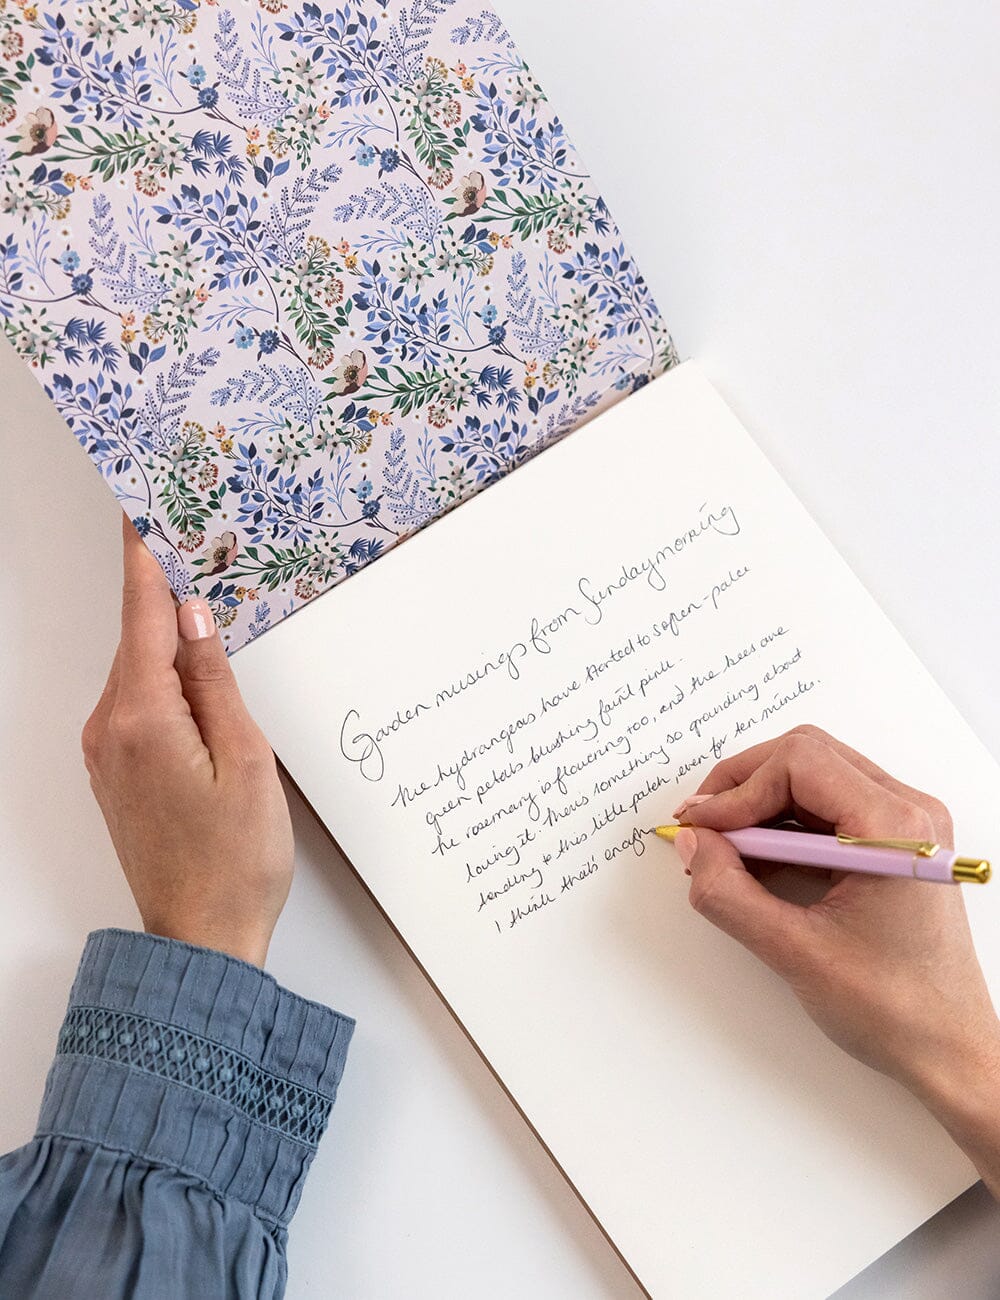 Garden musings from Sunday morning
The hydrangeas have started to soften - paler
green petals blushing faint pink.
The rosemary is flowering too, and the bees are
loving it. There's something so grounding about
tending to this little patch, even for ten minutes.
I think that's enough